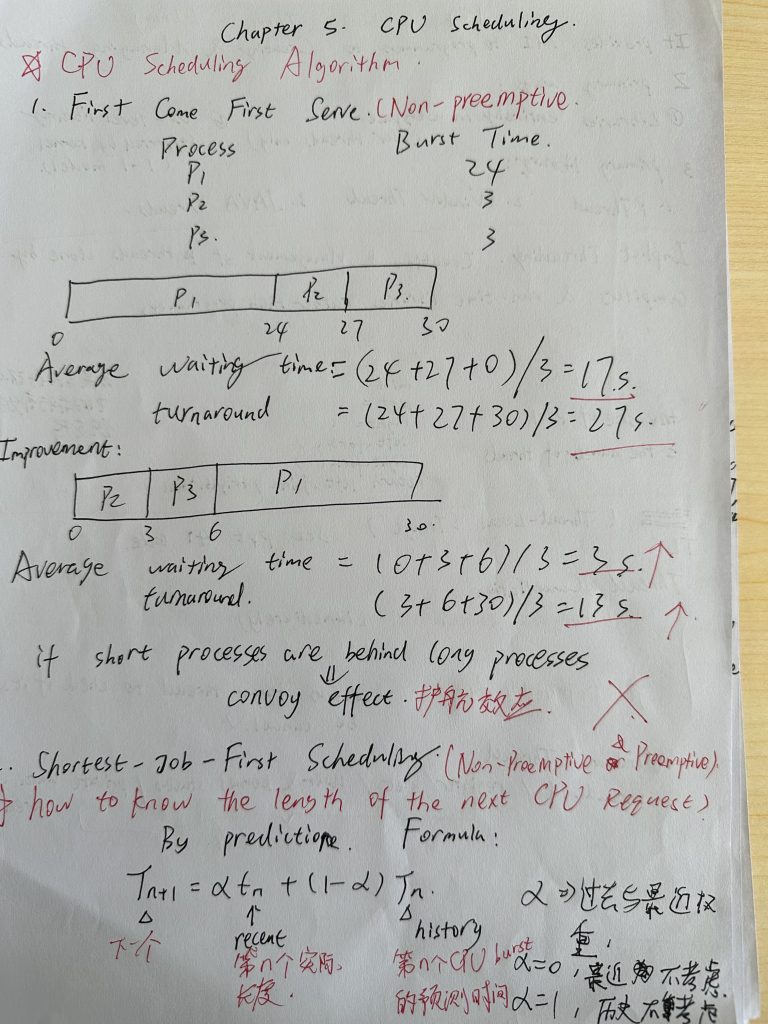 Chapter 5. CPU Scheduling.
CPU Scheduling Algorithm.
1. First Come First Serve. (Non-preemptive.
Process Burst Time.
P1 24
P2 3
P3. 3
P1 P2 P3.
0 24 27 30
Average waiting time = (24+27+0)/3 = 17s.
turnaround = (24+27+30)/3 = 27s.
Improvement:
P2 P3 P1
0 3 6 30.
Average waiting time = (0+3+6)/3 = 3s. ↑
turnaround. (3+6+30)/3 = 13s. ↑
if short processes are behind long processes
⇓
convoy effect. 护航效应.
. Shortest-Job-First Scheduling. (Non-Preemptive & Preemptive).
how to know the length of the next CPU Request)
By prediction. Formula:
Tn+1 = αtn + (1-α) Tn.
α ⇒ 过去与最近权重,
下一个
recent
history
第n个实际长度.
第n个CPU burst的预测时间
α=0, 最近不考虑.
α=1, 历史不考虑